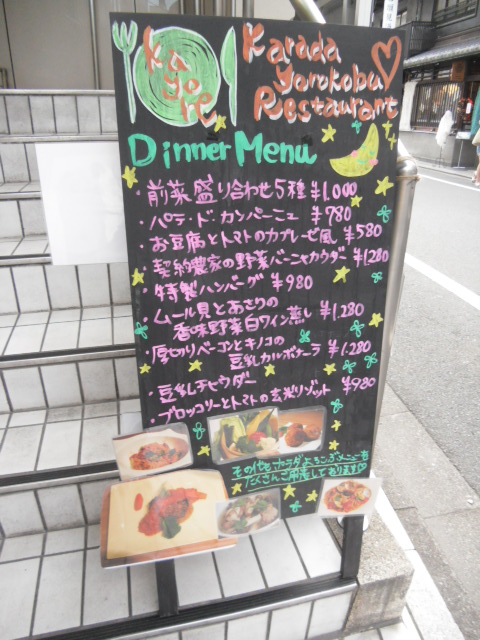 Kagore
Karada
Yorokobu
Restaurant
Dinner Menu
・前菜盛り合わせ5種 ¥1,000
・パテ・ド・カンパーニュ ¥780
・お豆腐とトマトのカプレーゼ風 ¥580
・契約農家の野菜バーニャカウダー ¥1,280
・特製ハンバーグ ¥980
・ムール貝とあさりの
香味野菜白ワイン蒸し ¥1,280
・厚切りベーコンとキノコの
豆乳カルボナーラ ¥1,280
・豆乳チャウダー
・ブロッコリーとトマトの玄米リゾット ¥980
その他もカラダよろこぶメニューを
たくさんご用意しております♡